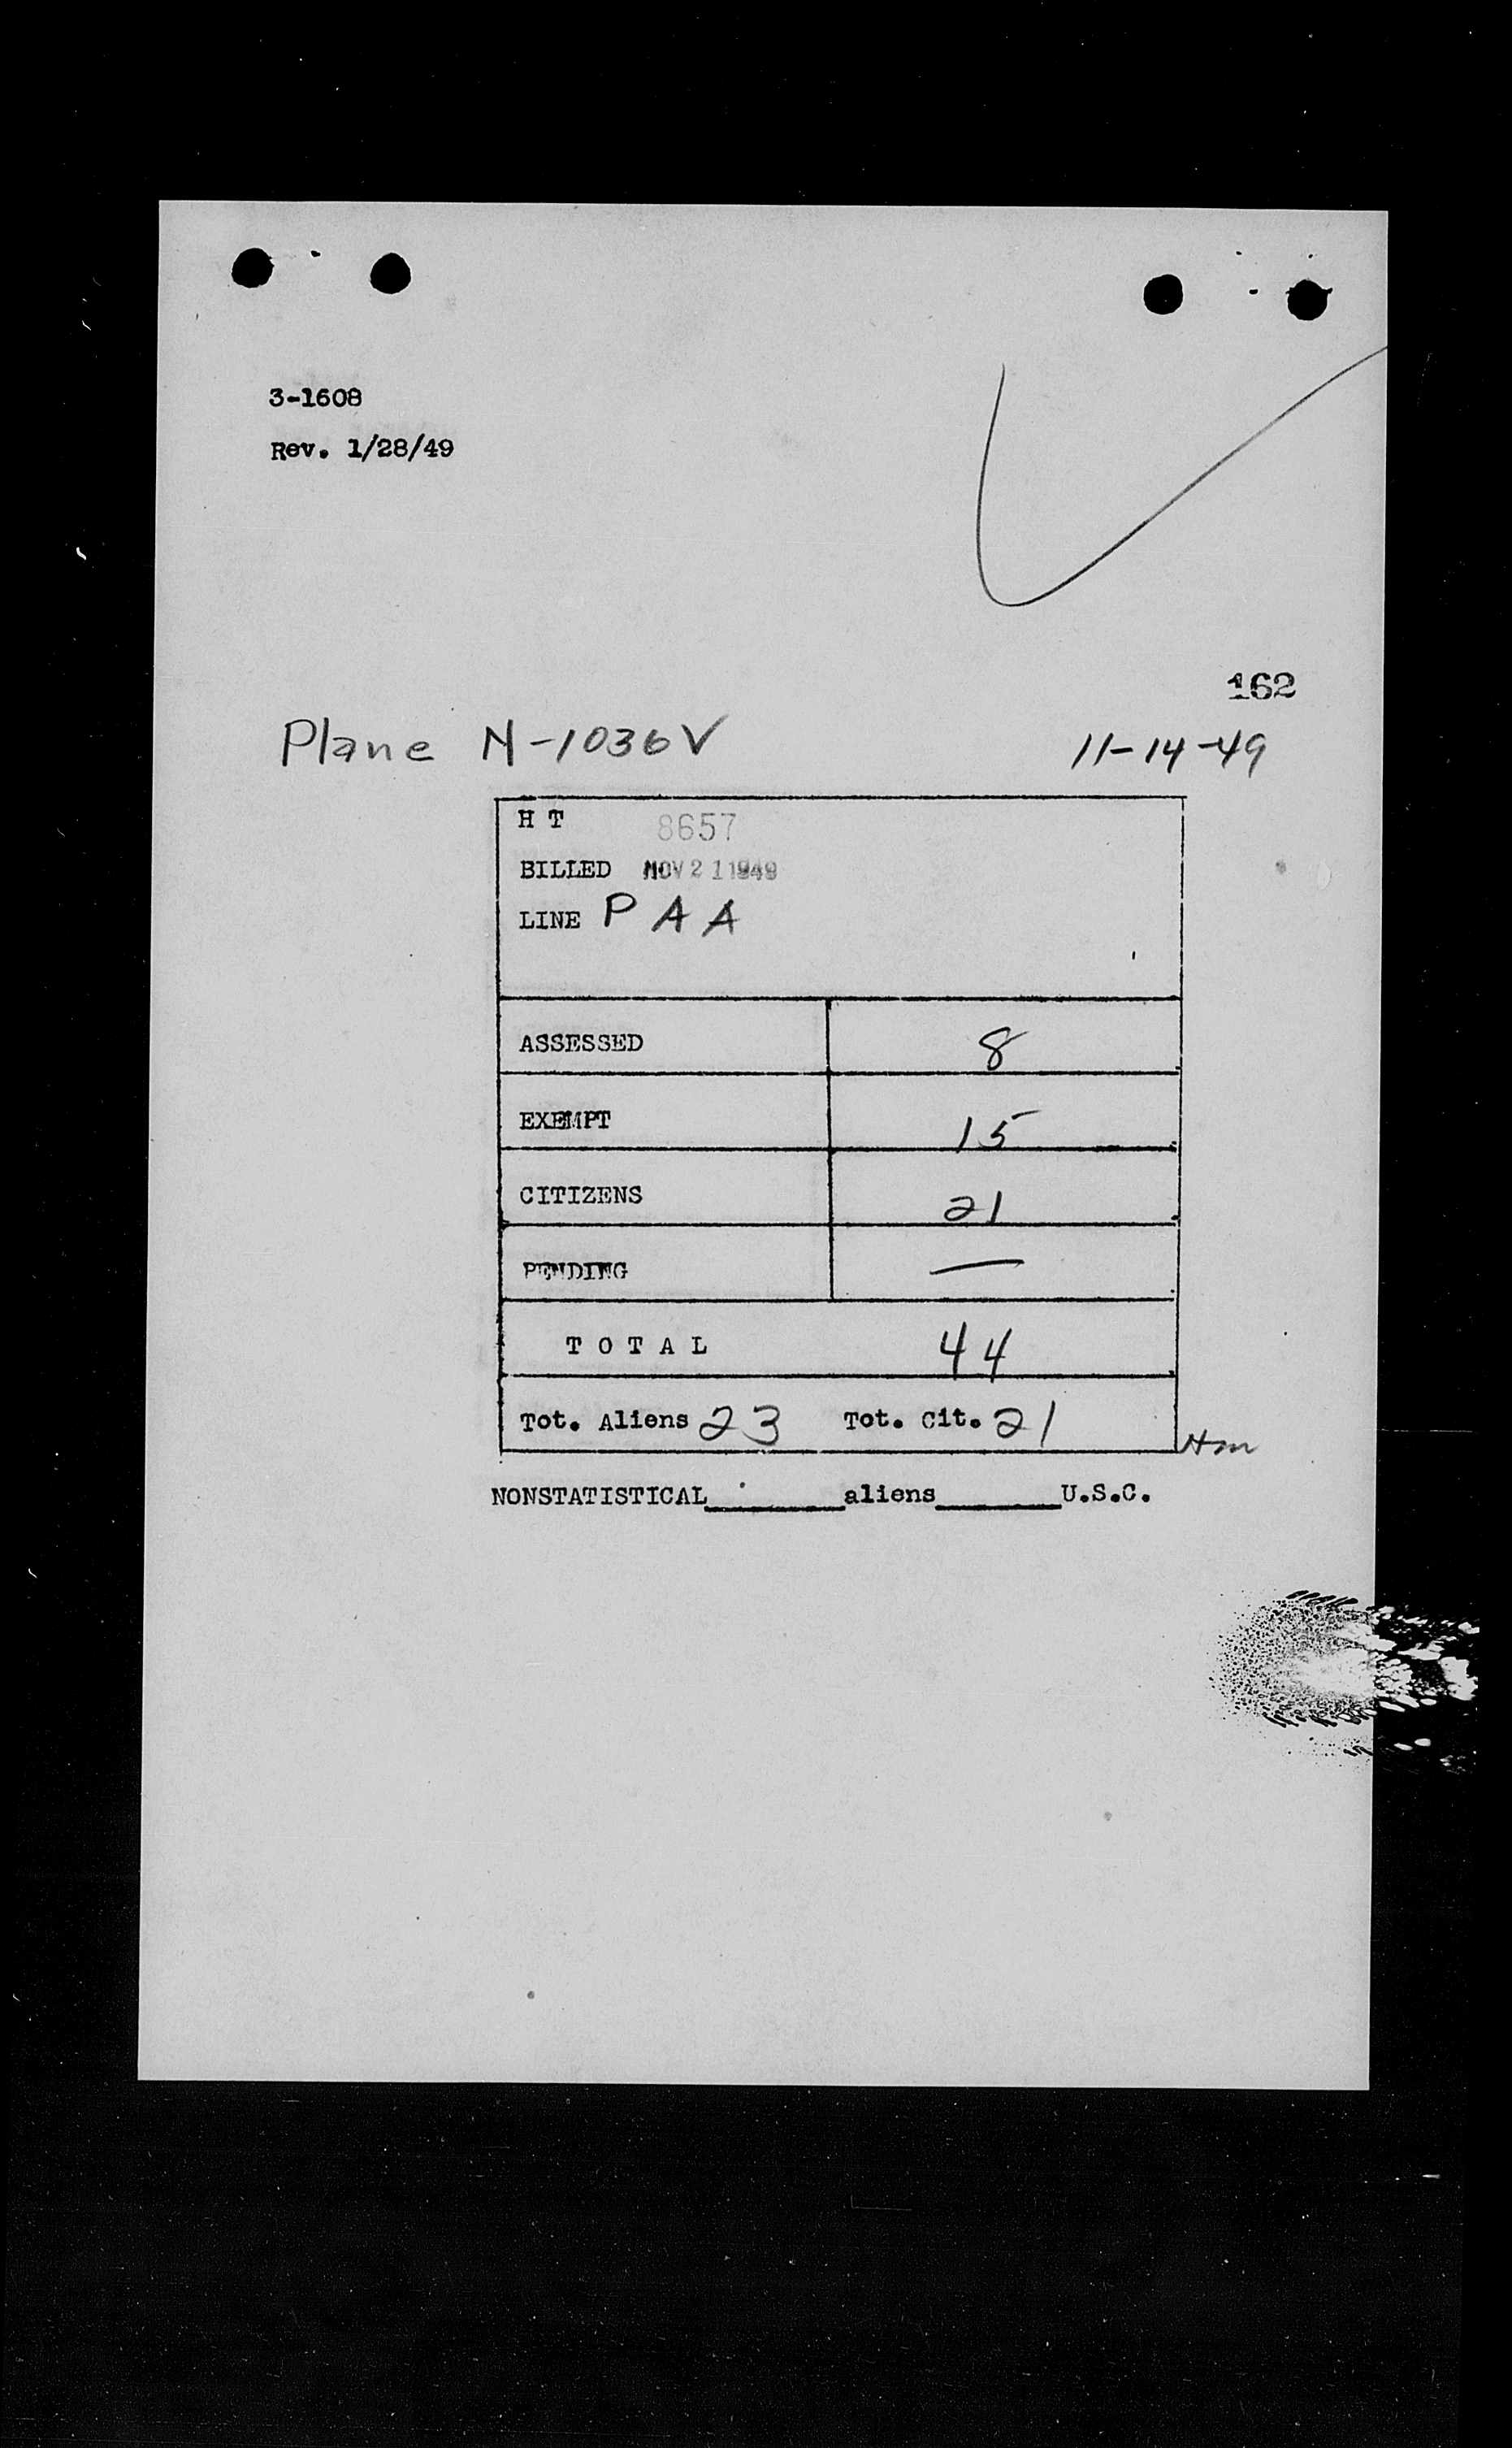 3-1608
Rev. 1/28/49
162
Plane N-1036V 11-14-49
H T 8657
BILLED NOV 21 1949
LINE P A A
ASSESSED 8
EXEMPT 15
CITIZENS 21
PENDING —
T O T A L 44
Tot. Aliens 23 Tot. Cit. 21
Hm
NONSTATISTICAL________aliens________U.S.C.